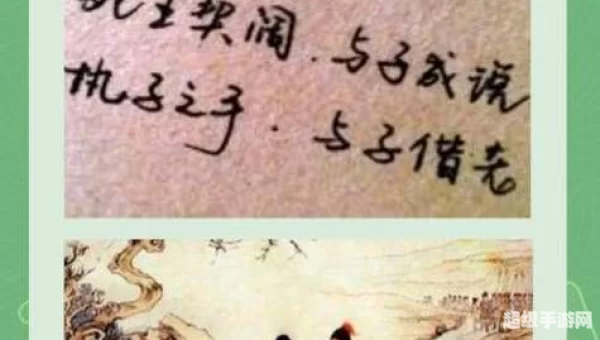 死生契阔.与子成说
执子之手.与子借老
超级手游网